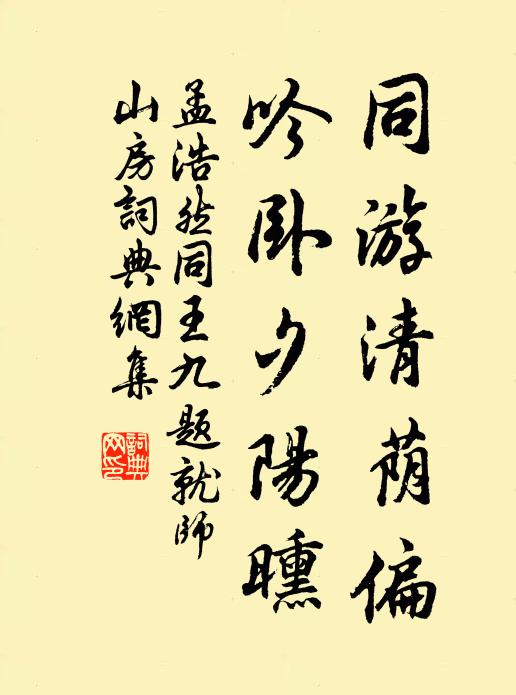 同游清荫偏
吟卧夕陽曛
孟浩然同王九題就師
山房詞典網集
詞典网印